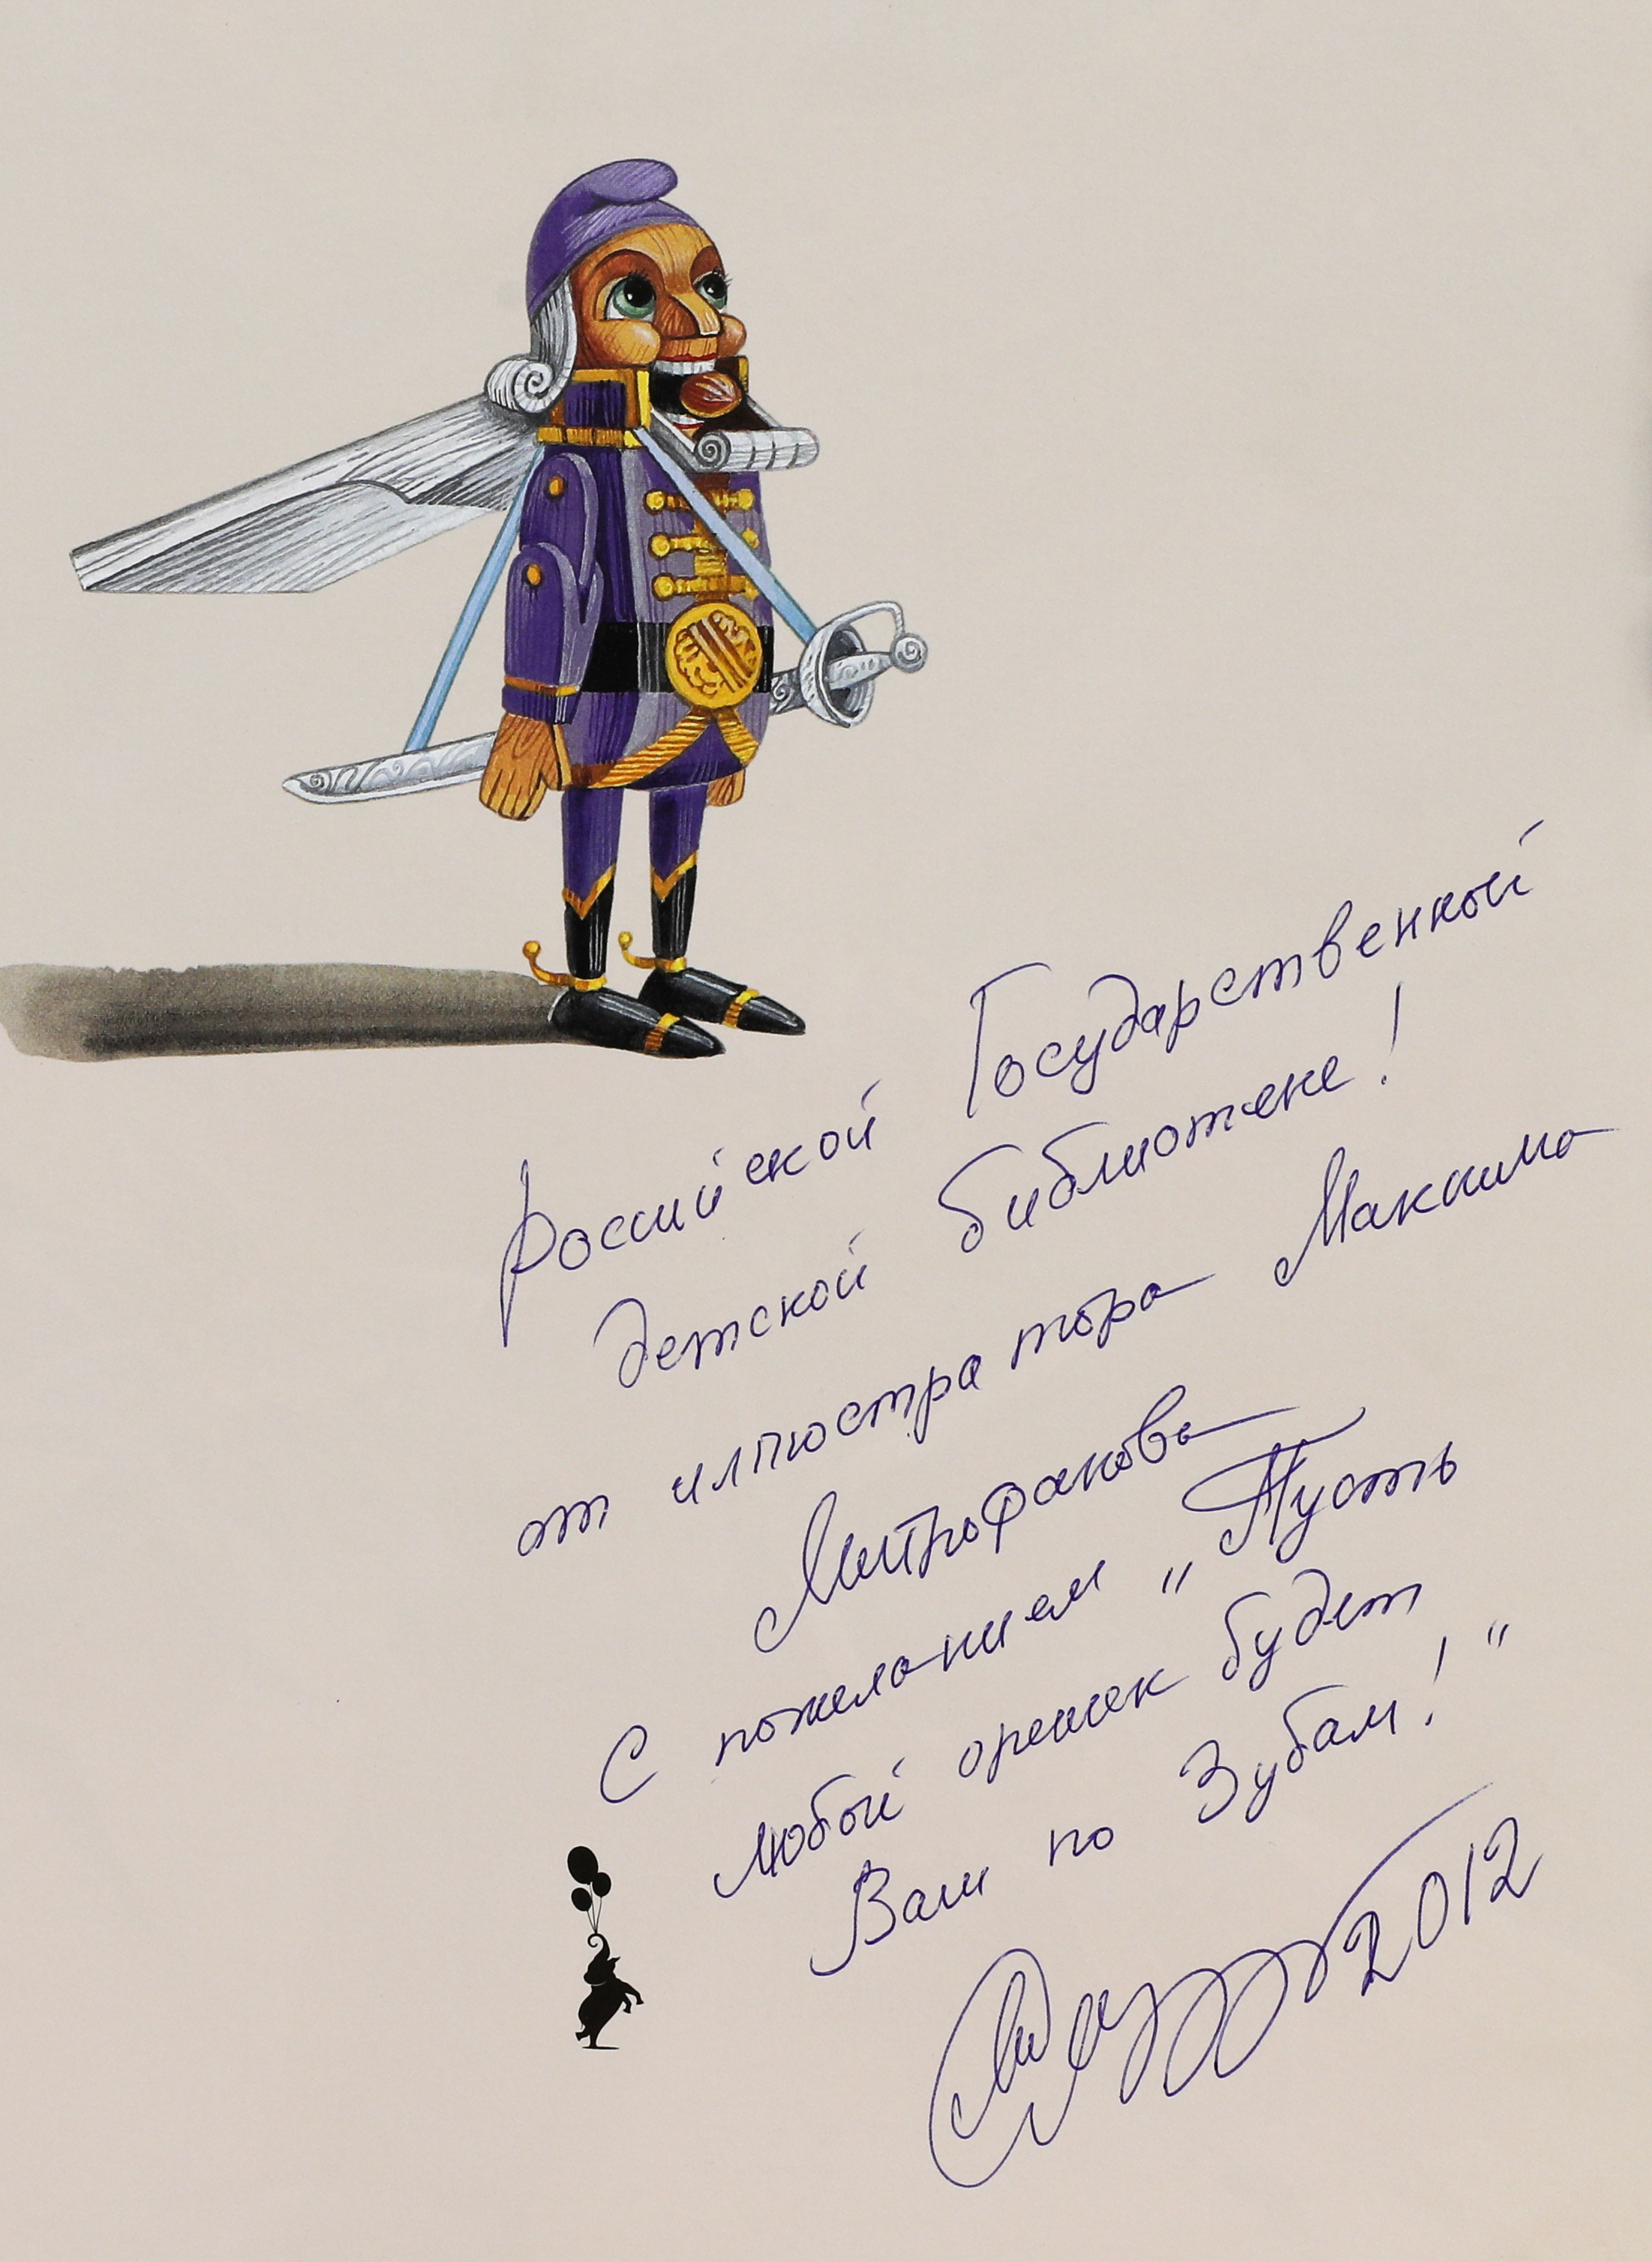 Российской Государственной
детской библиотеке!
от иллюстратора Максима
Митрофанова
С пожеланием "Пусть
любой орешек будет
Вам по Зубам!"
2012